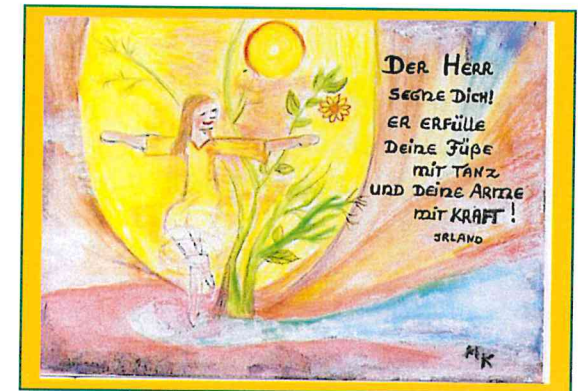 DER HERR
SEGNE DICH!
ER ERFÜLLE
DEINE FÜßE
MIT TANZ
UND DEINE ARME
MIT KRAFT!
IRLAND
MK